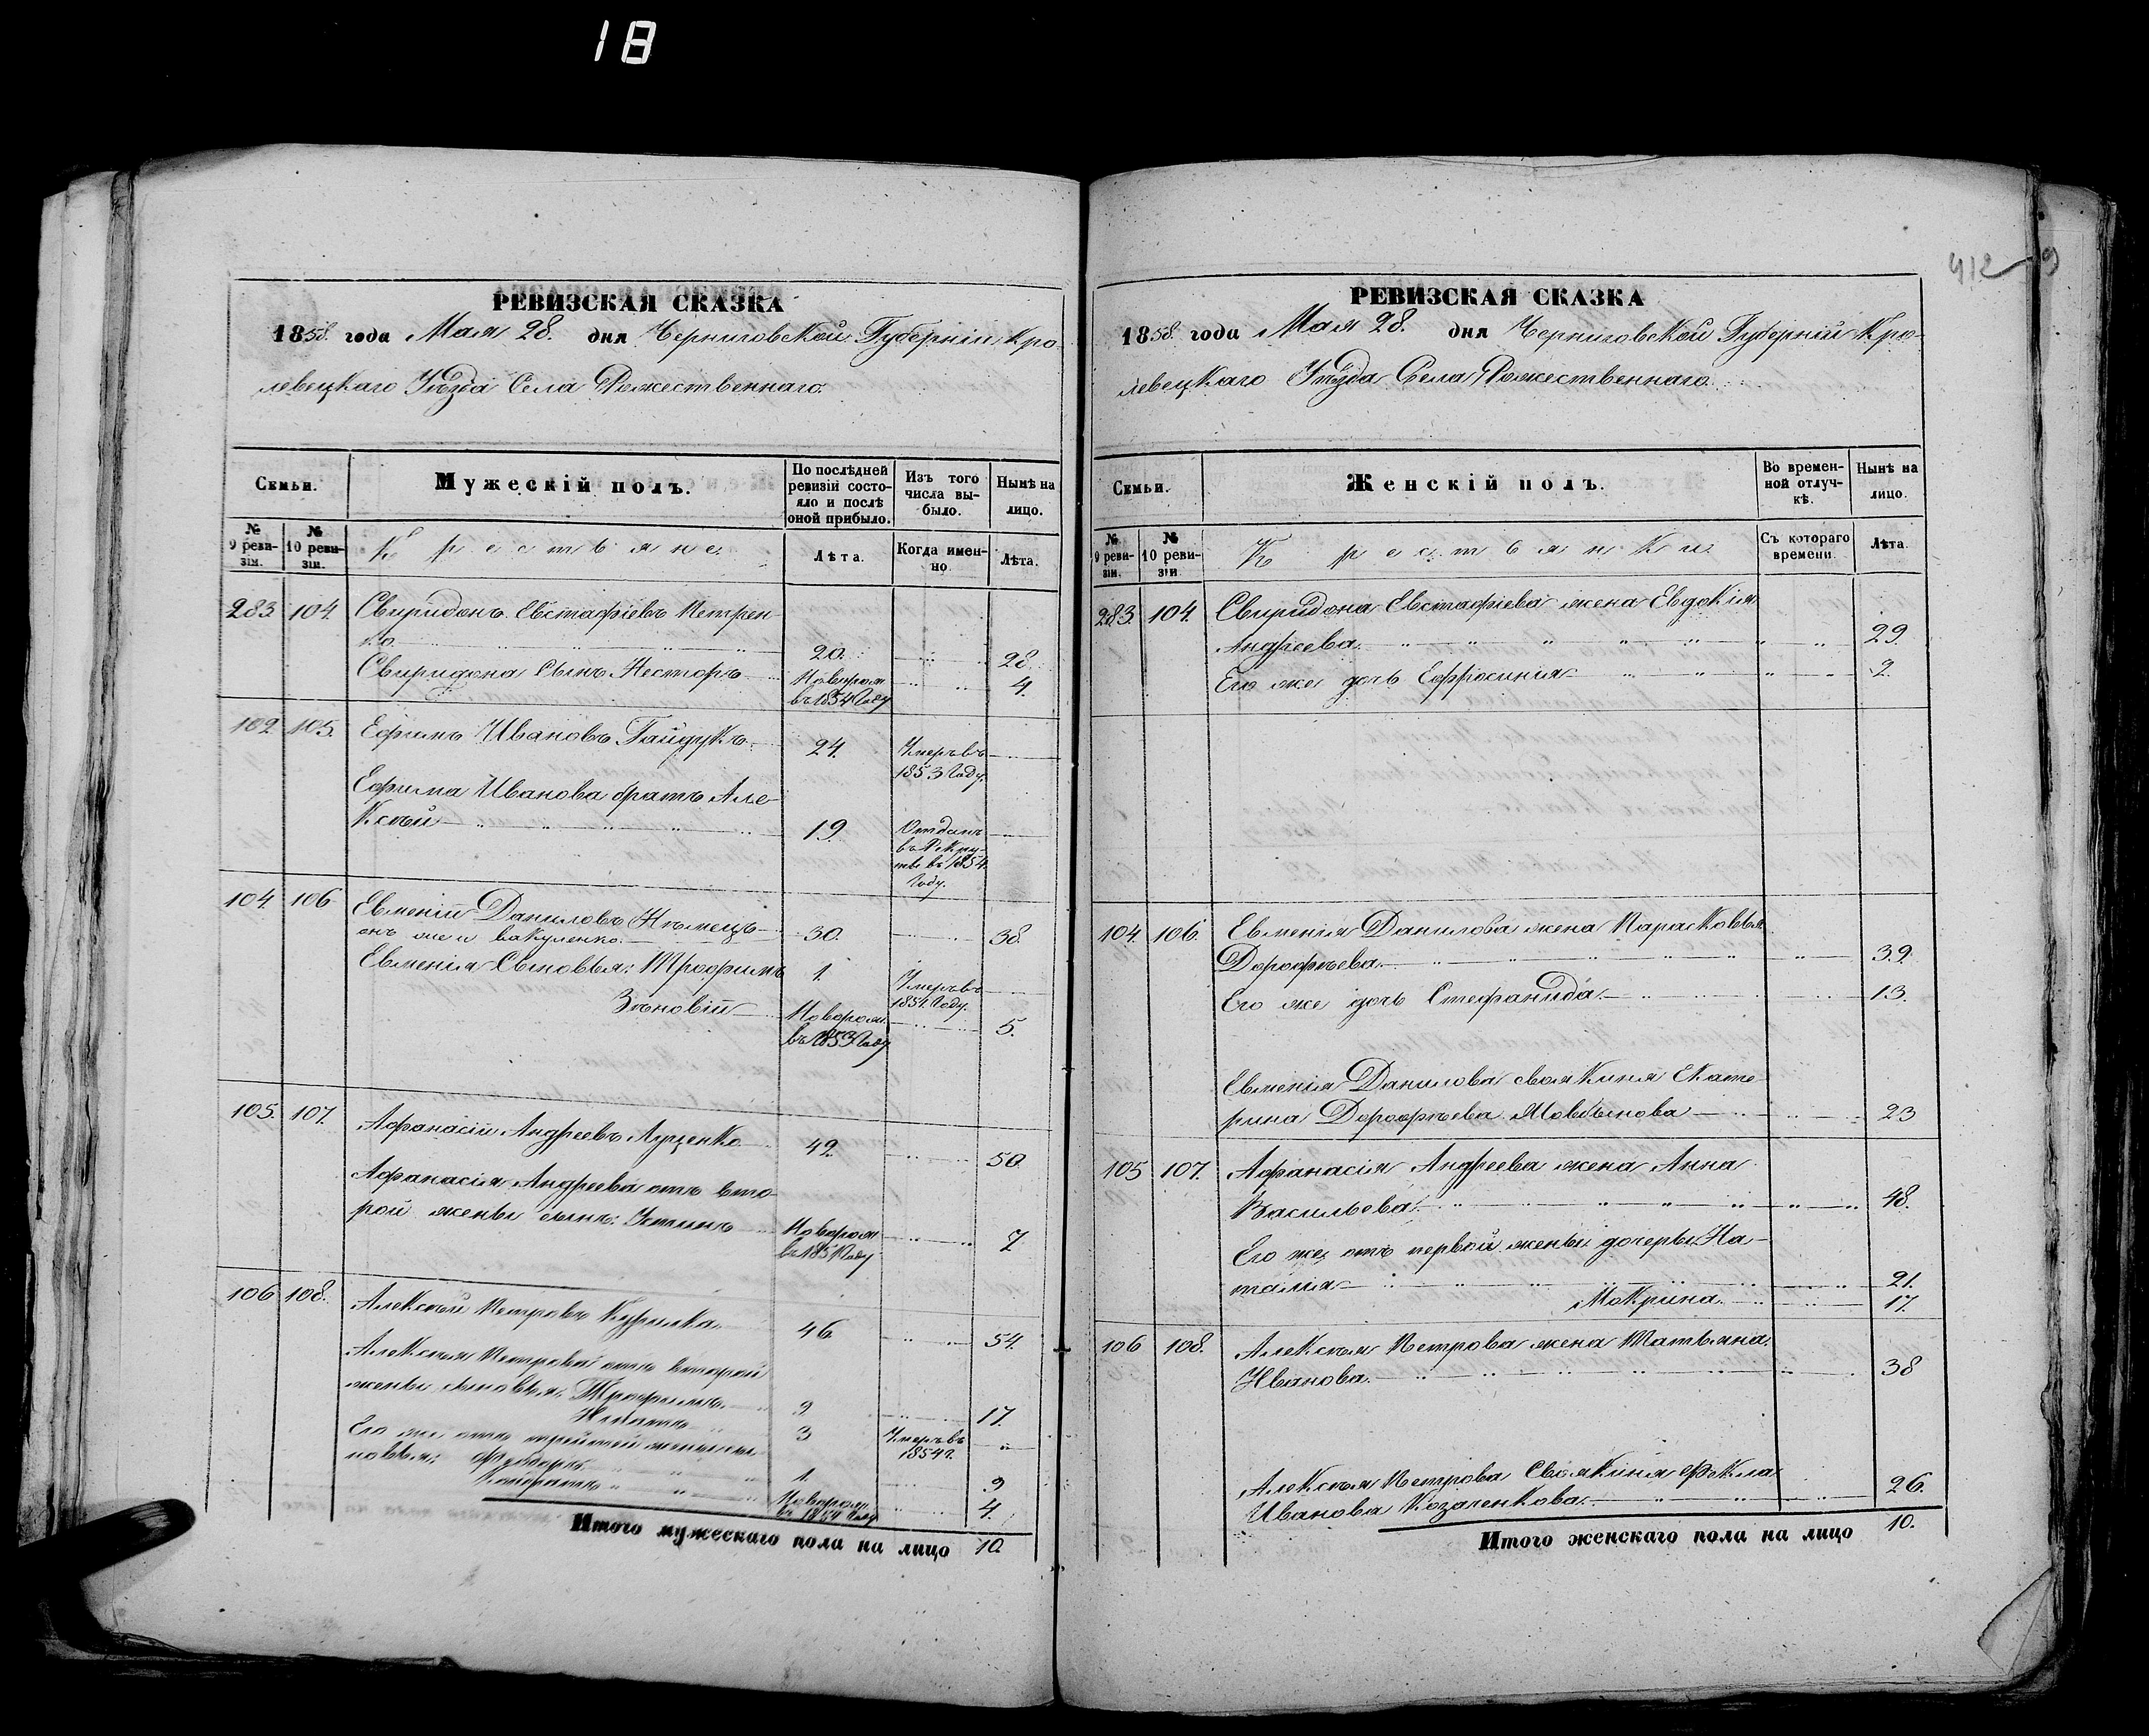 18
412
9
РЕВИЗСКАЯ СКАЗКА
1858. года Мая 28. дня Черниговской Губерніи Кро-
левецкаго Уѣзда Села Рожественнаго.
Семьи.
Мужескій полъ.
По послѣдней ревизіи состо-яло и послѣ оной прибыло.
Изъ того числа вы-было.
Нынѣ на лицо.
№ 9 реви-зіи.
№ 10 реви-зіи.
Крестьяне.
Лѣта.
Когда имен-но
Лѣта.
283. 104. Свиридонъ Евстафіевъ Петрен-
ко 20. 28.
Свиридона Сынъ Несторъ Новорож в 1854 Году 4.
102 105. Ефимъ Ивановъ Гайдукъ 24. Умеръ въ 1853 Году.
Ефима Иванова братъ Але-
ксѣй 19. Отданъ въ Рекру-ты въ 1854. Году.
104. 106 Евменій Даниловъ Нѣмецъ
онъ же и Вакуленко. 30. 38.
Евменія Сыновья: Трофимъ 1. Умеръ въ 1851 Году.
Зѣновій Новорож. въ 1853 Году 5.
105. 107. Афанасій Андреевъ Луценко 42. 50.
Афанасія Андреева отъ вто-
рой жены сынъ: Устинъ Новорож в 1851 Году 7.
106 108. Алексѣй Петровъ Курилка 46 54.
Алексѣя Петрова отъ второй
жены сыновья: Трофимъ 9 17.
Игнатъ 3 Умеръ въ 1854 г.
Его же отъ третьей жены сы-
новья: Федоръ 1. 9
Кондратъ Новорож. в 1854 Году 4.
Итого мужескаго пола на лицо 10.
РЕВИЗСКАЯ СКАЗКА
1858. года Мая 28. дня Черниговской Губерніи Кро-
левецкаго Уѣзда Села Рожественнаго.
Семьи.
Женскій полъ.
Во времен-ной отлуч-кѣ.
Нынѣ на лицо.
№ 9 реви-зіи.
№ 10 реви-зіи
Крестьянки.
Съ котораго времени.
Лѣта.
283. 104. Свиридона Евстафіева жена Евдокія
Андреева 29.
Его же дочь Ефросинія 2.
104. 106. Евменія Данилова жена Парасковья
Дорофѣева 39.
Его же дочь Стефанида. 13.
Евменія Данилова своякиня Екате-
рина Дорофѣева 23
105 107. Афанасія Андреева жена Анна
Васильева. 48.
Его же, отъ первой жены дочеры: На-
талия 21.
Мокрина. 17.
106 108. Алексѣя Петрова жена Татьяна
Иванова. 38
Алексѣя Петрова Своякиня Фекла
Иванова Козаченкова. 26.
Итого женскаго пола на лицо 10.